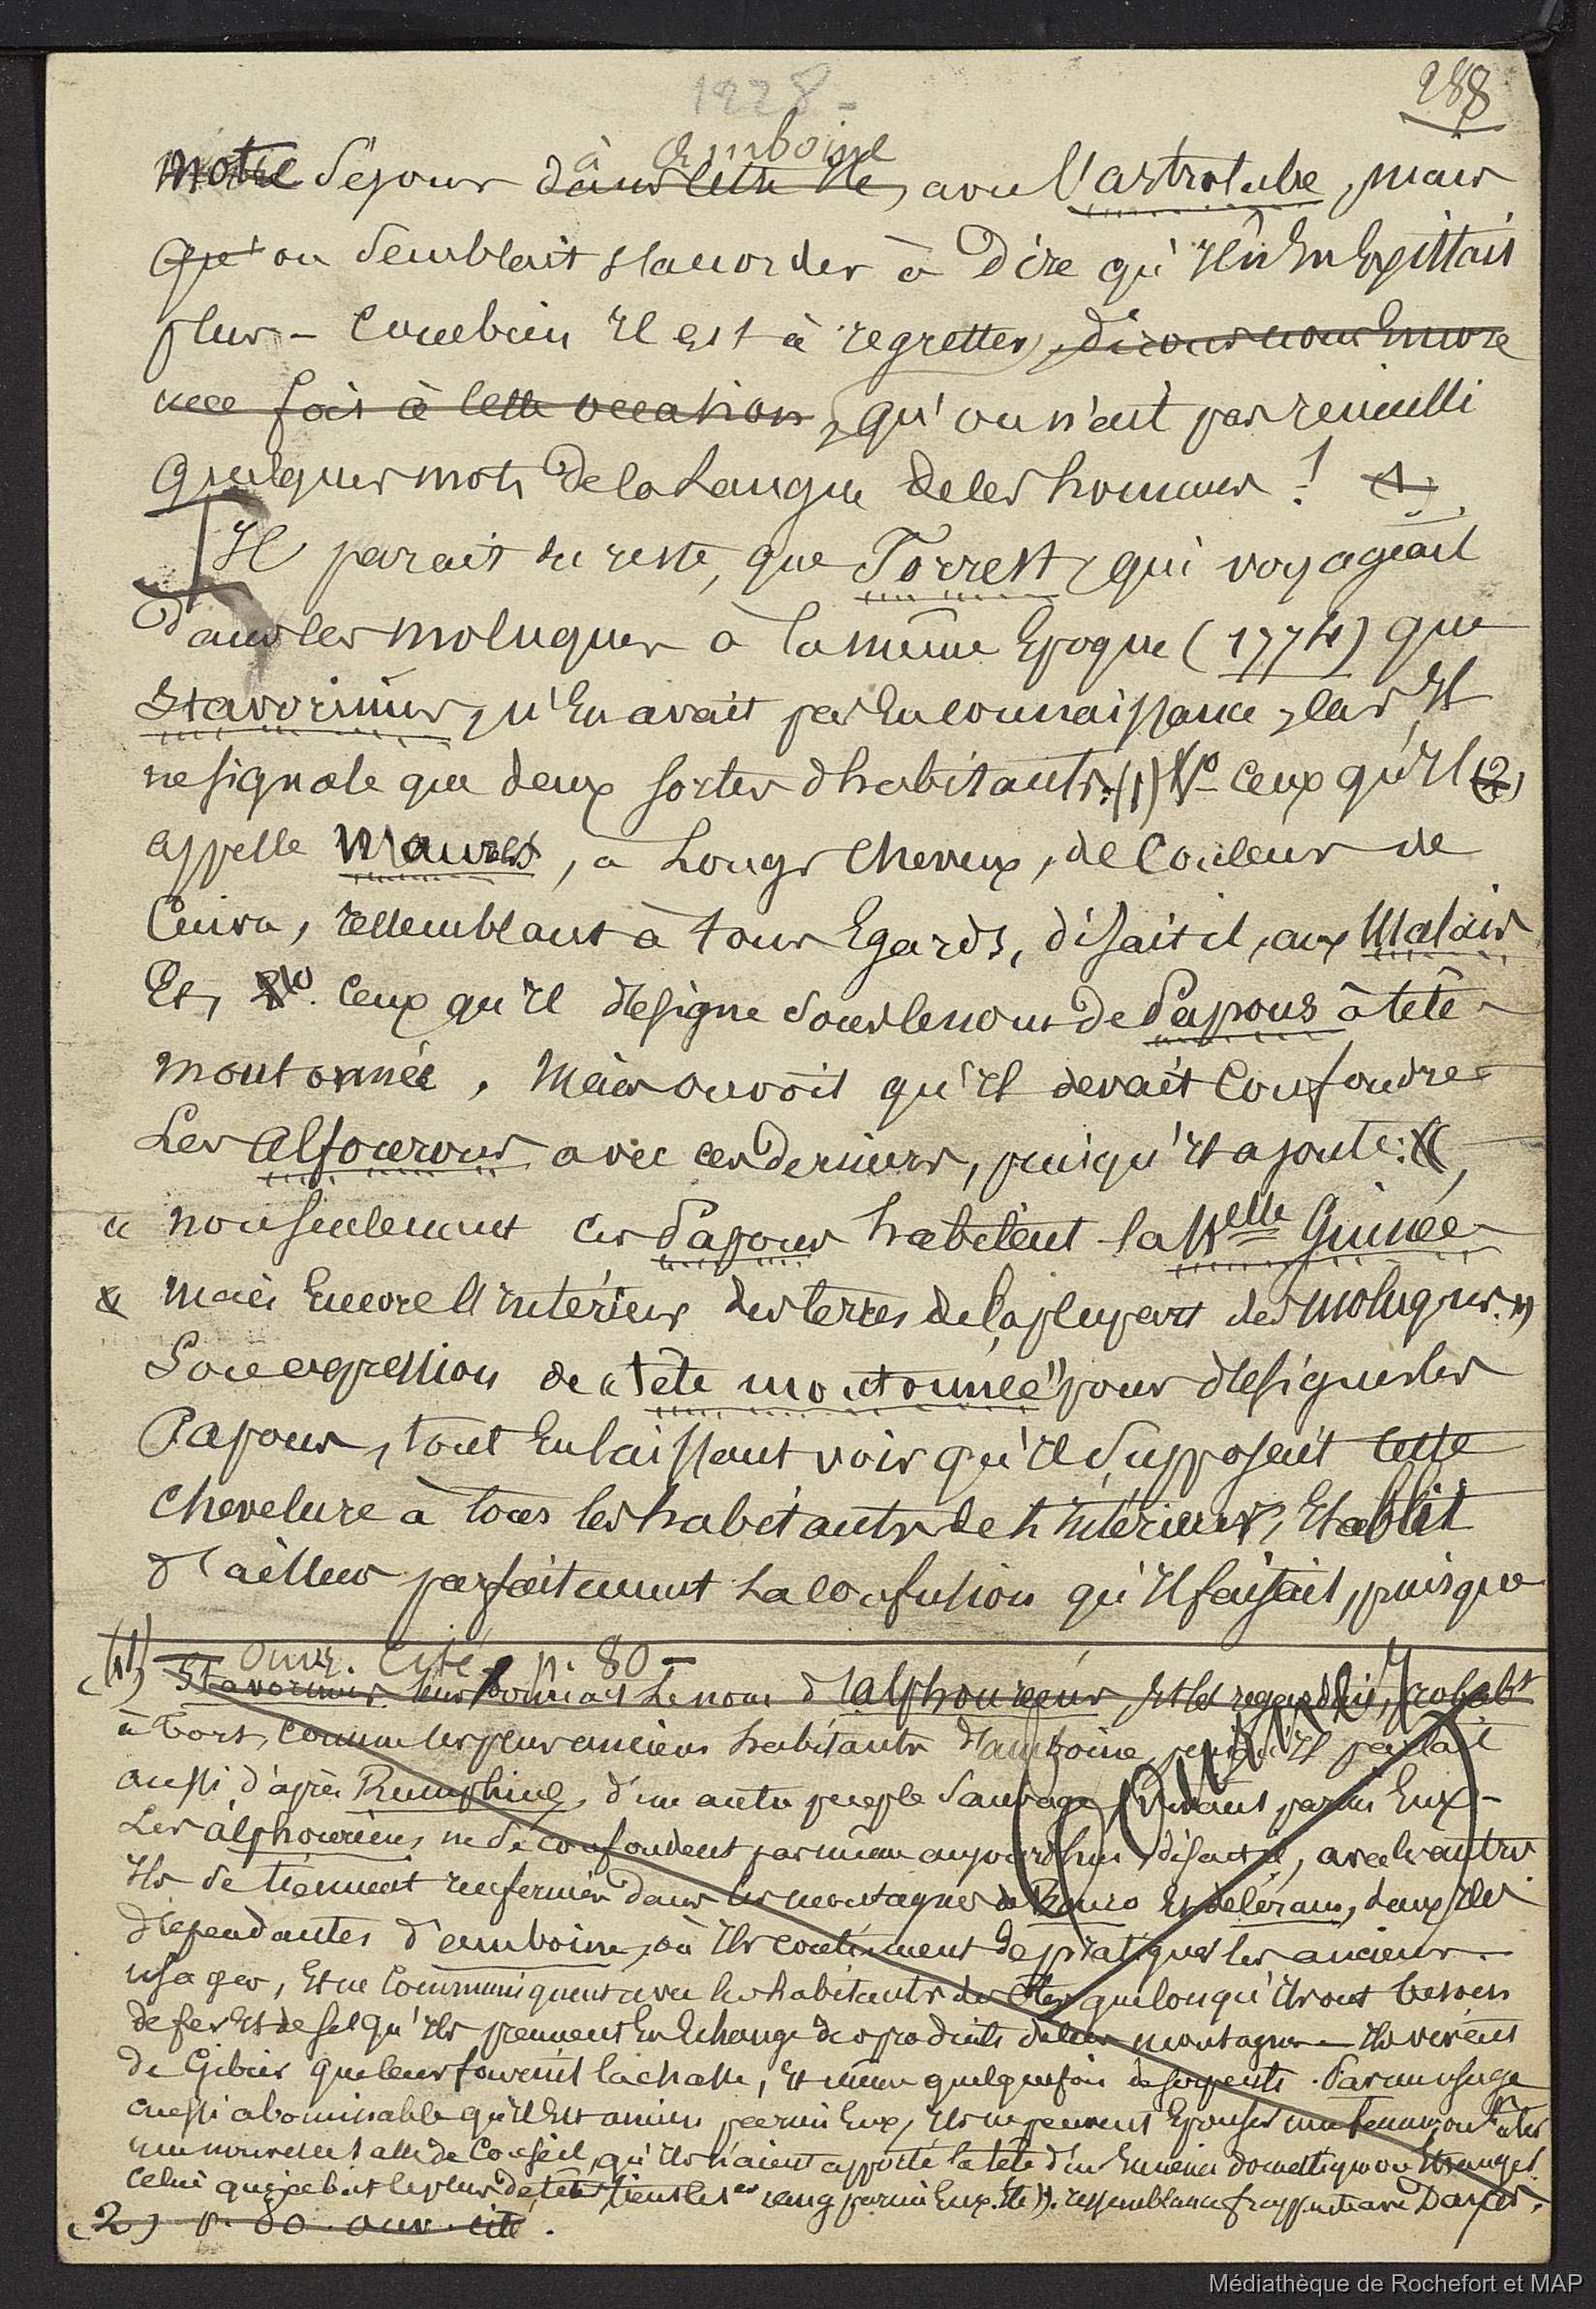 1828 -
288
à amboine
Notre Séjour dans cette île, avec l'astrolabe, mais
qu'on semblait s'accorder à Dire qu'Il n'En Existait
plus - combien Il est à regretter, disons nous Encore
une fois à cette occasion, qu'on n'ait pas recueilli
quelques mots De la Langue de ces hommes ! (1)
Il parait du reste, que Forrest, qui voyageait
Dans les moluques à la même Epoque (1774) que
Stavorinus, n'En avait pas Eu connaissance, car Il
ne signale que deux sortes d'habitants: (1) 1o ceux qu'Il (2)
appelle Maures, à Longs cheveux, de Couleur de
Cuivre, ressemblant à tous Egards, disait il, aux Malais
Et, 2o. Ceux qu'Il désigne sous le nom De Papous à tête
moutonnée. Mais on voit qu'Il devait Confondre
Les alfourous avec ces Derniers, puisqu'Il ajoute:
« non seulement ces Papous habitent la Nelle Guinée
« mais Encore l'Intérieur des terres de la plupart des moluques. »
Son expression de « tête moutonnée » pour désigner les
Papous, tout En laissant voir qu'Il supposait cette
chevelure à tous les habitants de l'Intérieur, Etablit
d'ailleurs parfaitement La confusion qu'Il faisait, puisque
(1) ouvr. Cité, p. 80 -
Stavorinus leur donnait Le nom d'alphouréens, Et les regardait, probabt
à tort, comme les plus anciens habitants d'amboine, puisqu'Il parlait
aussi d'après Rumphius, d'un autre peuple Sauvage Existant parmi Eux -
Les alphouriens, ne se confondent pas même aujourd'hui, disait il, avec les autres
Ils se tiennent renfermés Dans les montagnes de Bouro Et de Céram, deux îles
Dépendantes d'amboine, où Ils continuent De pratiquer les anciens
usages, Et ne Communiquent avec les habitants des côtes que lorsqu'Ils ont besoin
de fer Et de sel qu'Ils prennent En Echange des produits de leurs montagnes - Ils vivent
de Gibier que leur fournit la chasse, Et même quelquefois de serpents. Par un usage
aussi abominable qu'Il Est ancien parmi Eux, Ils ne peuvent Epouser une femme, ou bâtir
une nouvelle salle de Conseil, qu'Ils n'aient apporté la tête d'un Ennemi domestique ou Etranger.
Celui qui abat le plus de têtes tient le 1er rang parmi Eux. ressemblance frappante avec Dayas.
(2) p. 80. ouv. cité.
Médiathèque de Rochefort et MAP